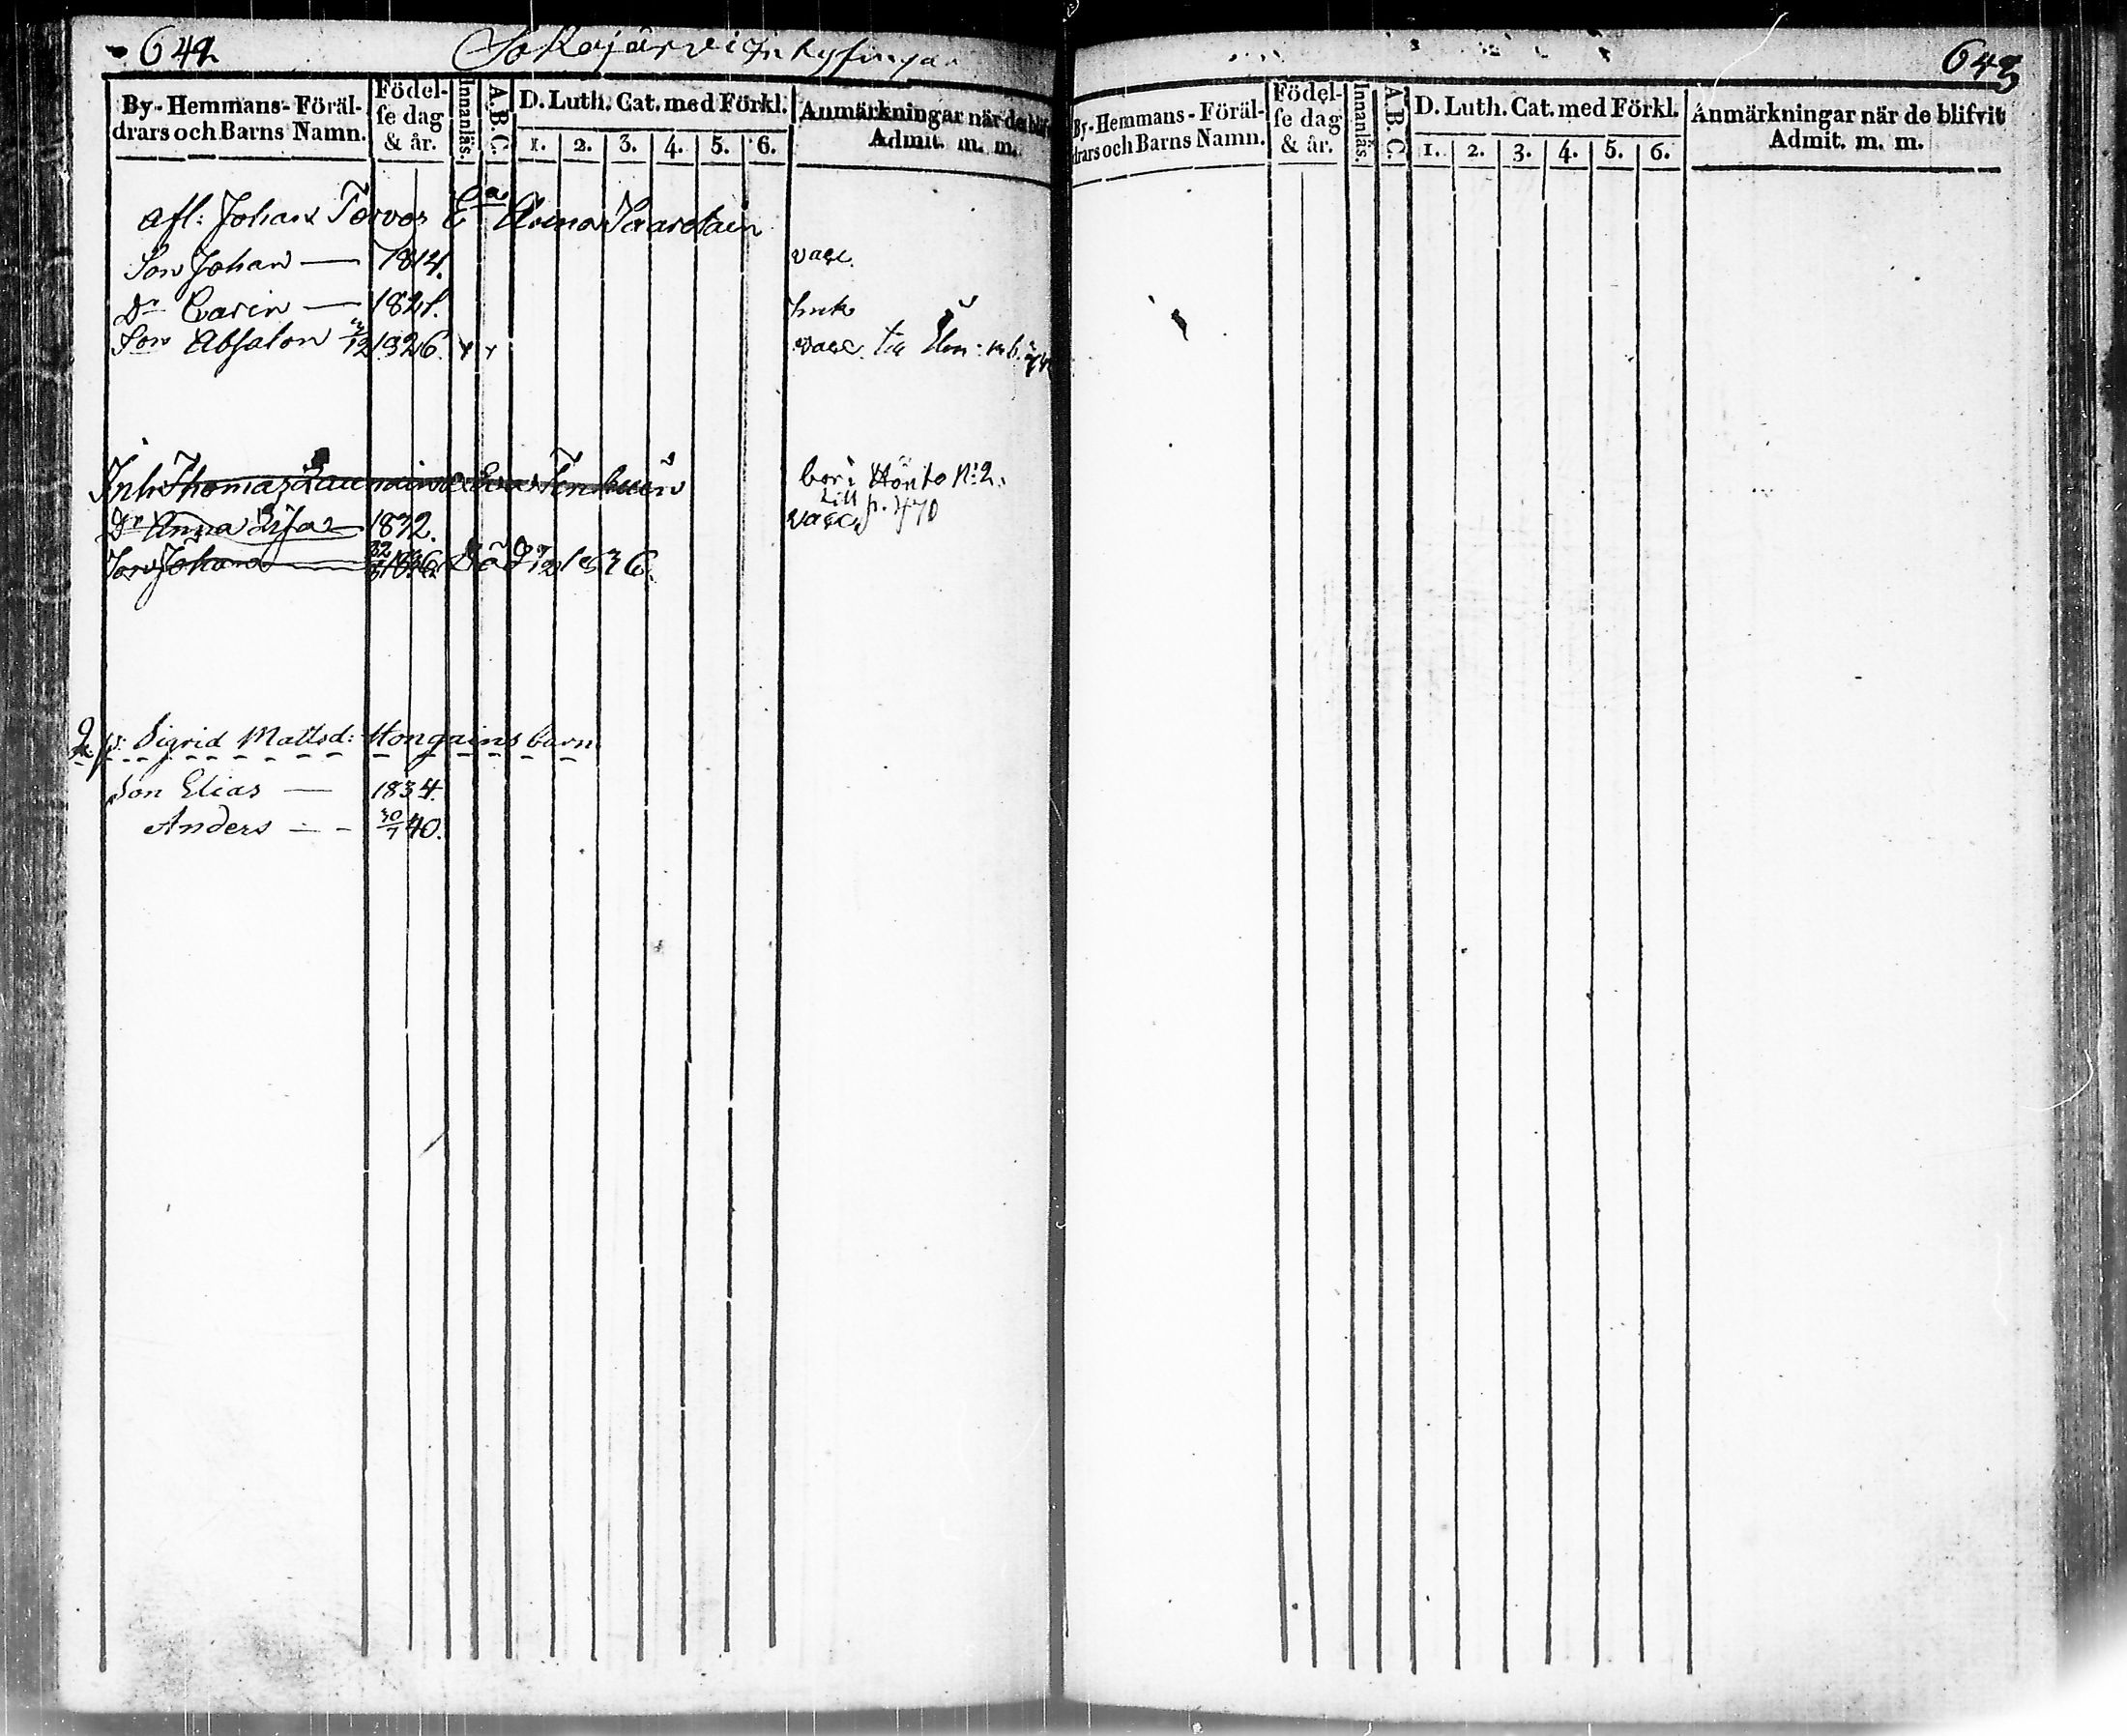 642
Sokojärvi Inhysingar
By- Hemmans- Föräl-
drars och Barns Namn.
Födel-
se dag
& år.
Innanläs.
A.B.C.
D. Luth. Cat. med Förkl.
1. 2. 3. 4. 5. 6.
Anmärkningar när de blif
Admit. m. m.
afl: Johan Torvos Ea Anna
Son Johan — 1814. vacc.
Dr Carin — 1821.
Son Absalon 1826. x x vacc. till
Inh Thomas & Eva bor i Hönto No 2.
till p. 470
Dr Anna Lisa 1832. vacc.
Son Johan 1836. Död 1836.
Q: p: Sigrid Mattsd: Hongains barn
Son Elias — 1834.
Anders — - 30/7 40.
643
By- Hemmans- Föräl-
drars och Barns Namn.
Födel-
se dag
& år.
Innanläs.
A.B.C.
D. Luth. Cat. med Förkl.
1. 2. 3. 4. 5. 6.
Anmärkningar när de blifvit
Admit. m. m.